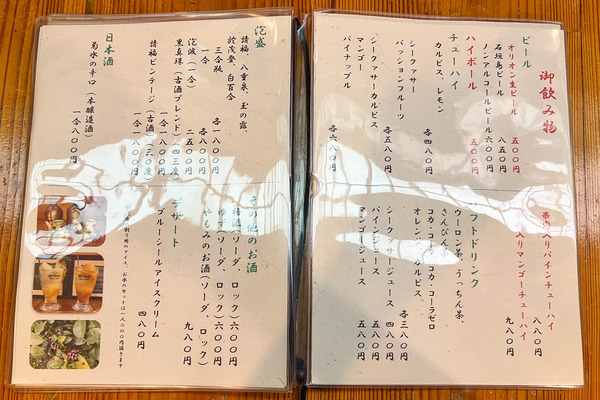 御飲み物
ビール
オリオン生ビール 五〇〇円
石垣島ビール 八五〇円
ノンアルコールビール 六〇〇円
ハイボール 五〇〇円
チューハイ
カルピス、レモン
各四八〇円
シークァサー
パッションフルーツ
各五八〇円
シークァサーカルピス、
マンゴー
パイナップル
各六八〇円
果肉入りパインチューハイ
八八〇円
入りマンゴーチューハイ
九八〇円
フトドリンク
ウーロン茶、うっちん茶、
さんぴん
コカ・コーラ コカ・コーラゼロ
オレンジ カルピス、
各三八〇円
シークァサージュース 四八〇円
パインジュース 五八〇円
マンゴージュース 五八〇円
泡盛
請福、八重泉、玉の露、
於茂登、白百合
一合 各八〇〇円
三合瓶 各一八〇〇円
泡波(一合) 二五〇〇円
黒真珠(古酒ブレンド)(四三度)
一合一八〇〇円
請福ビンテージ(古酒)(三〇度)
一合一八〇〇円
日本酒
菊水の辛口(本醸造酒)
一合八〇〇円
その他のお酒
梅酒(ソーダ、ロック)六〇〇円
ゆず(ソーダ、ロック)六〇〇円
やもみのお酒(ソーダ、ロック)
九八〇円
デザート
ブルーシールアイスクリーム
四八〇円
割り用のアイス、お水のセットは一人二〇〇円頂きます